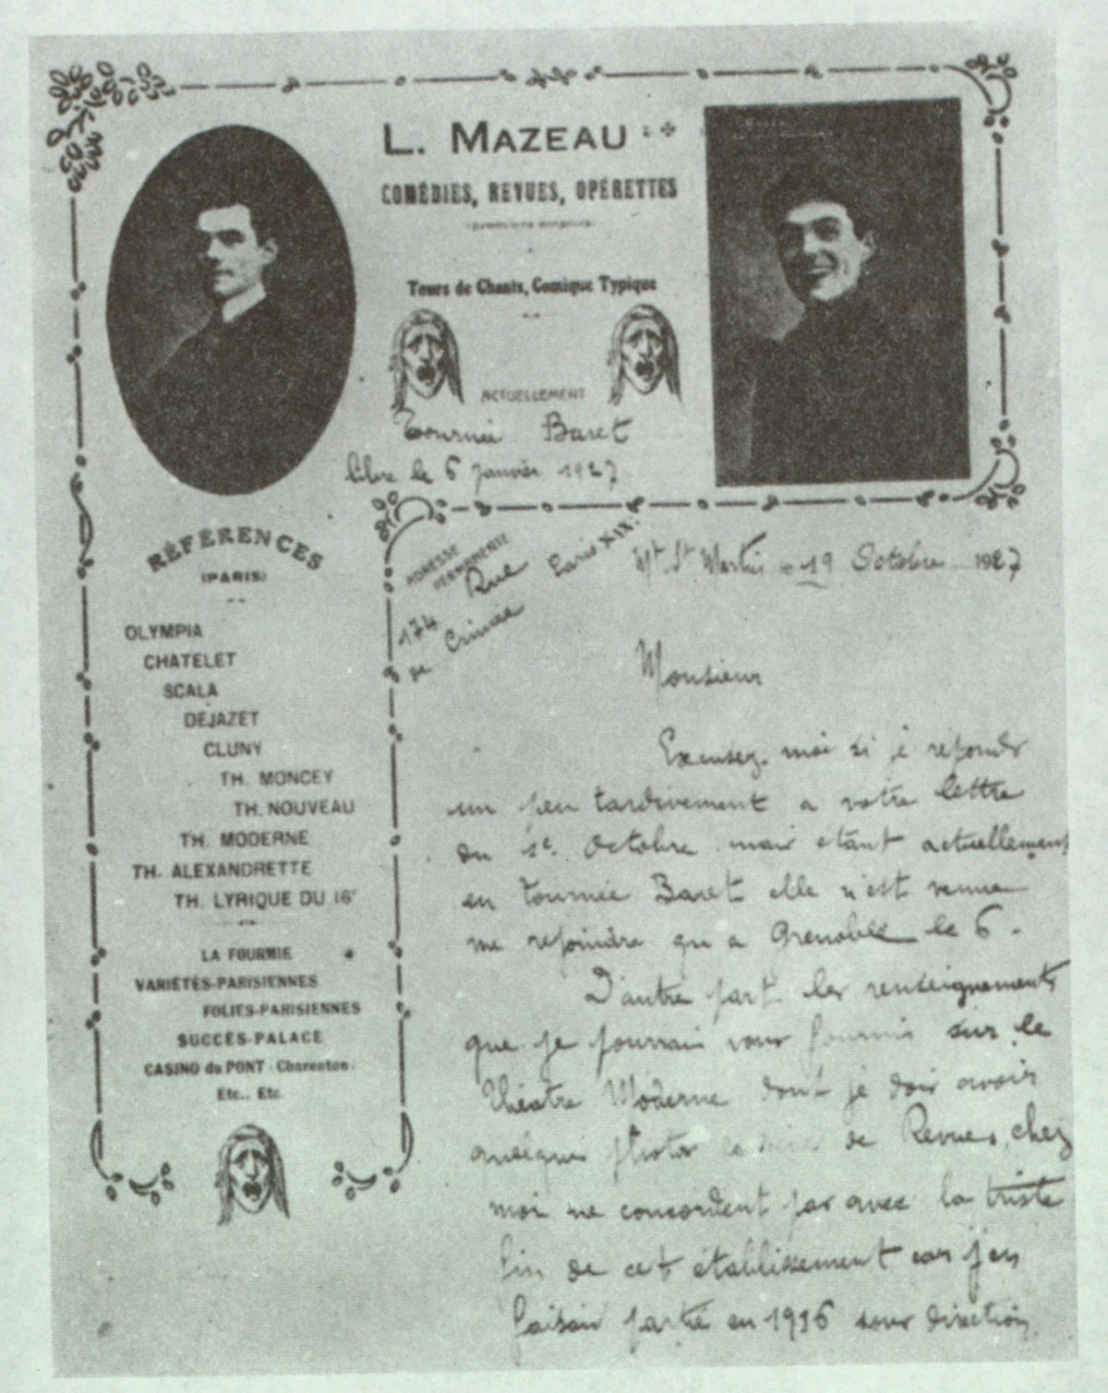 L. MAZEAU
COMÉDIES, REVUES, OPÉRETTES
Tours de Chants, Comique Typique
ACTUELLEMENT
Tournée Baret
libre le 6 Janvier 1927
RÉFÉRENCES
(PARIS)
OLYMPIA
CHATELET
SCALA
DEJAZET
CLUNY
TH. MONCEY
TH. NOUVEAU
TH. MODERNE
TH. ALEXANDRETTE
TH. LYRIQUE DU 16e
LA FOURMIE
VARIÉTÉS-PARISIENNES
FOLIES-PARISIENNES
SUCCÈS-PALACE
CASINO du PONT - Charenton.
Etc., Etc.
ADRESSE
PERMANENTE
174 Rue
de Crimée
Paris XIX
Mt St Martin le 19 Octobre 1927
Monsieur
Excusez-moi si je réponds
un peu tardivement a votre lettre
du 1e Octobre mais étant actuellement
en tournée Baret elle n'est venue
me rejoindre qu a Grenoble le 6.
D'autre part les renseignements
que je pourrais vous fournir sur le
théatre Moderne dont je dois avoir
quelques photos de Revues, chez
moi ne concordent pas avec la triste
fin de cet établissement car j'en
faisais partie en 1916 sous direction